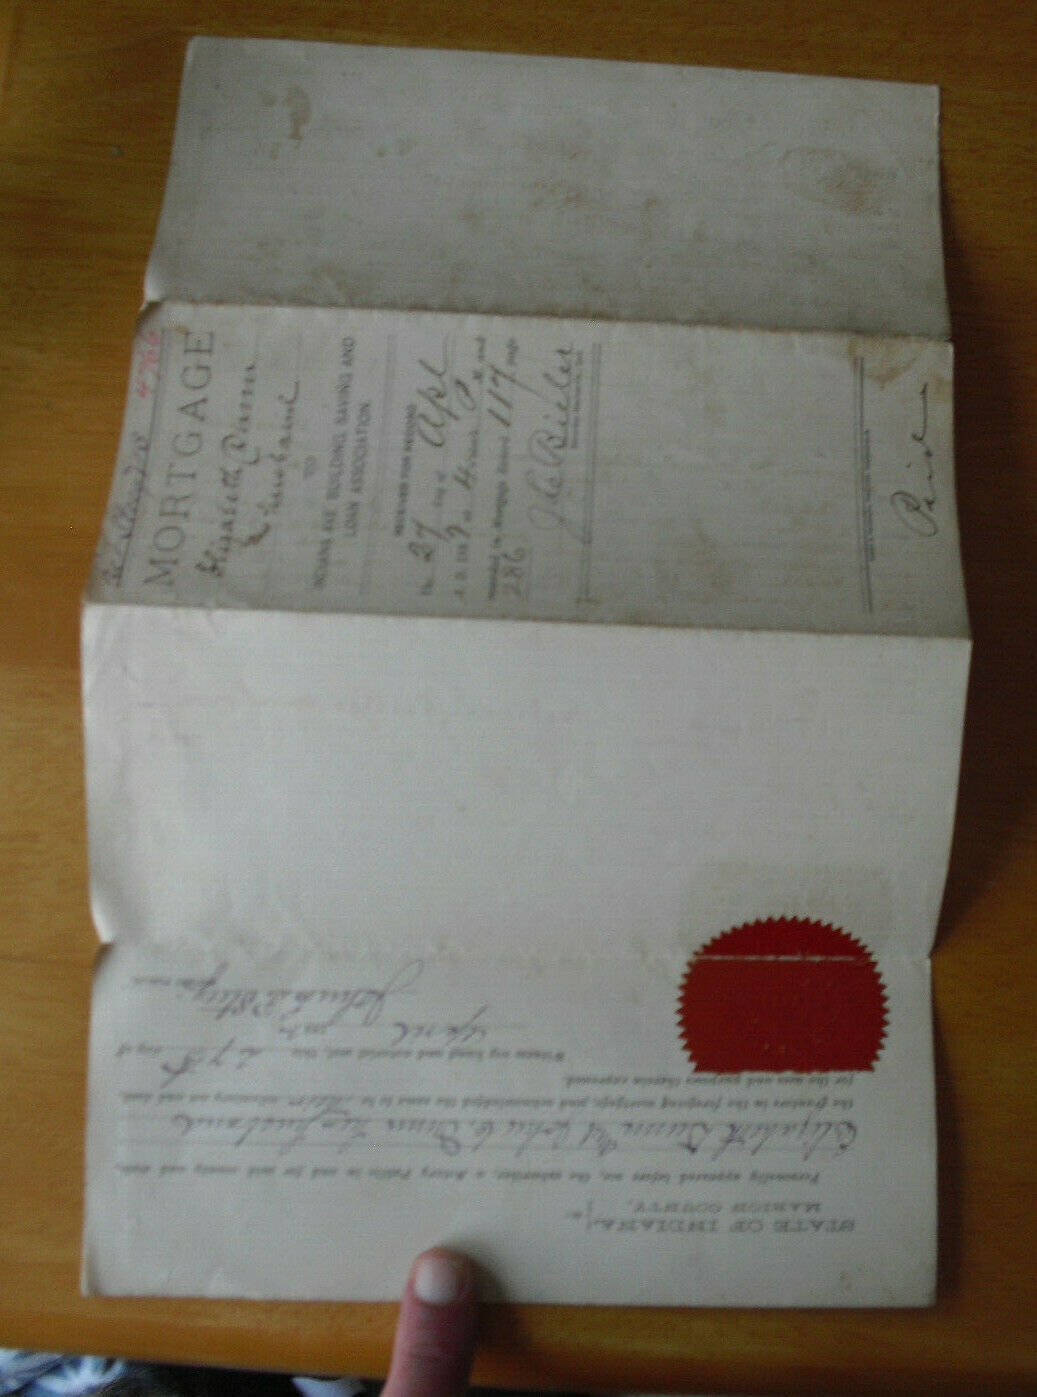 4766
MORTGAGE
Elizabeth Dunn
& husband
TO
INDIANA AVE BUILDING, SAVING AND
LOAN ASSOCIATION
RECEIVED FOR RECORD
This 27 day of Apl
A. D. 189 at 4
Recorded in Mortgage Record 117 page
286
Paid
STATE OF INDIANA,
MARION COUNTY,
Personally appeared before me, the subscriber, a Notary Public in and for said county and state,
Elizabeth Dunn and John C. Dunn her husband
the grantors in the foregoing mortgage, and acknowledged the same to be their voluntary act and deed,
for the uses and purposes therein expressed.
Witness my hand and notarial seal, this 27th day of
April